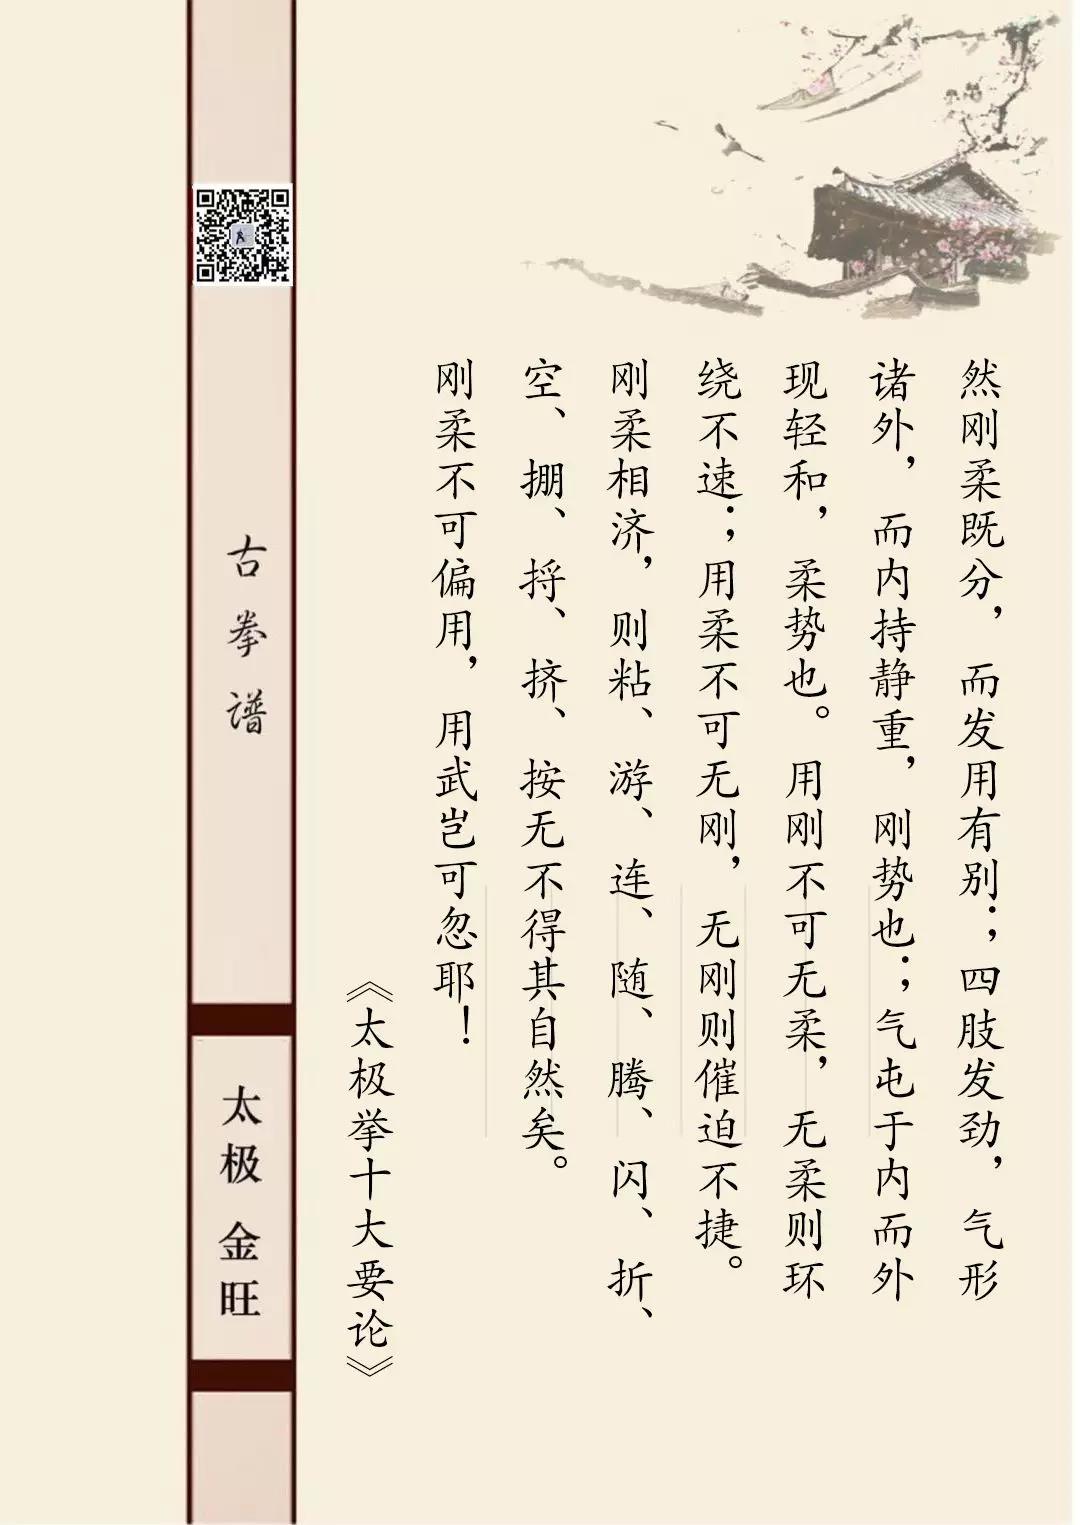 然刚柔既分，而发用有别；四肢发劲，气形
诸外，而内持静重，刚势也；气屯于内而外
现轻和，柔势也。用刚不可无柔，无柔则环
绕不速；用柔不可无刚，无刚则催迫不捷。
刚柔相济，则粘、游、连、随、腾、闪、折、
空、掤、捋、挤、按无不得其自然矣。
刚柔不可偏用，用武岂可忽耶！
《太极拳十大要论》
古拳谱
太极 金旺